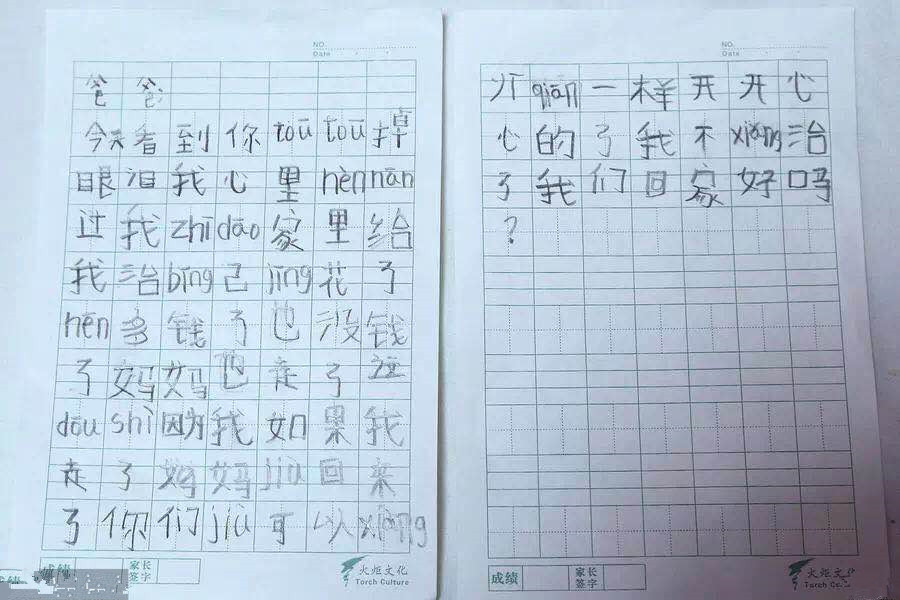 NO.
Date
爸爸
今天看到你toū toū掉
眼泪我心里hèn nān
过我zhī dāo家里给
我治bīng己jīng花了
hēn多钱了也没钱
了妈妈也走了这
dōu shì因为我如果我
走了妈妈jiù回来
了你们jiù可以xiāng
成绩
家长
签字
火炬文化
Torch Culture
NO.
Date
以qiān一样开开心
心的了我不xiǎng治
了我们回家好吗
?
成绩
家长
签字
火炬文化